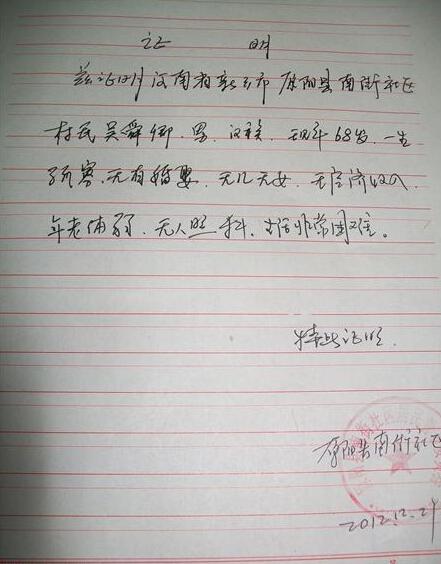 证 明
兹证明河南省新乡市原阳县南街社区
村民吴舜卿、男、汉族、现年68岁、一生
孤寡、无有婚娶、无儿无女、无经济收入
年老体弱、无人照料、生活非常困难。
特此证明.
原阳县南街社区
2012.12.29